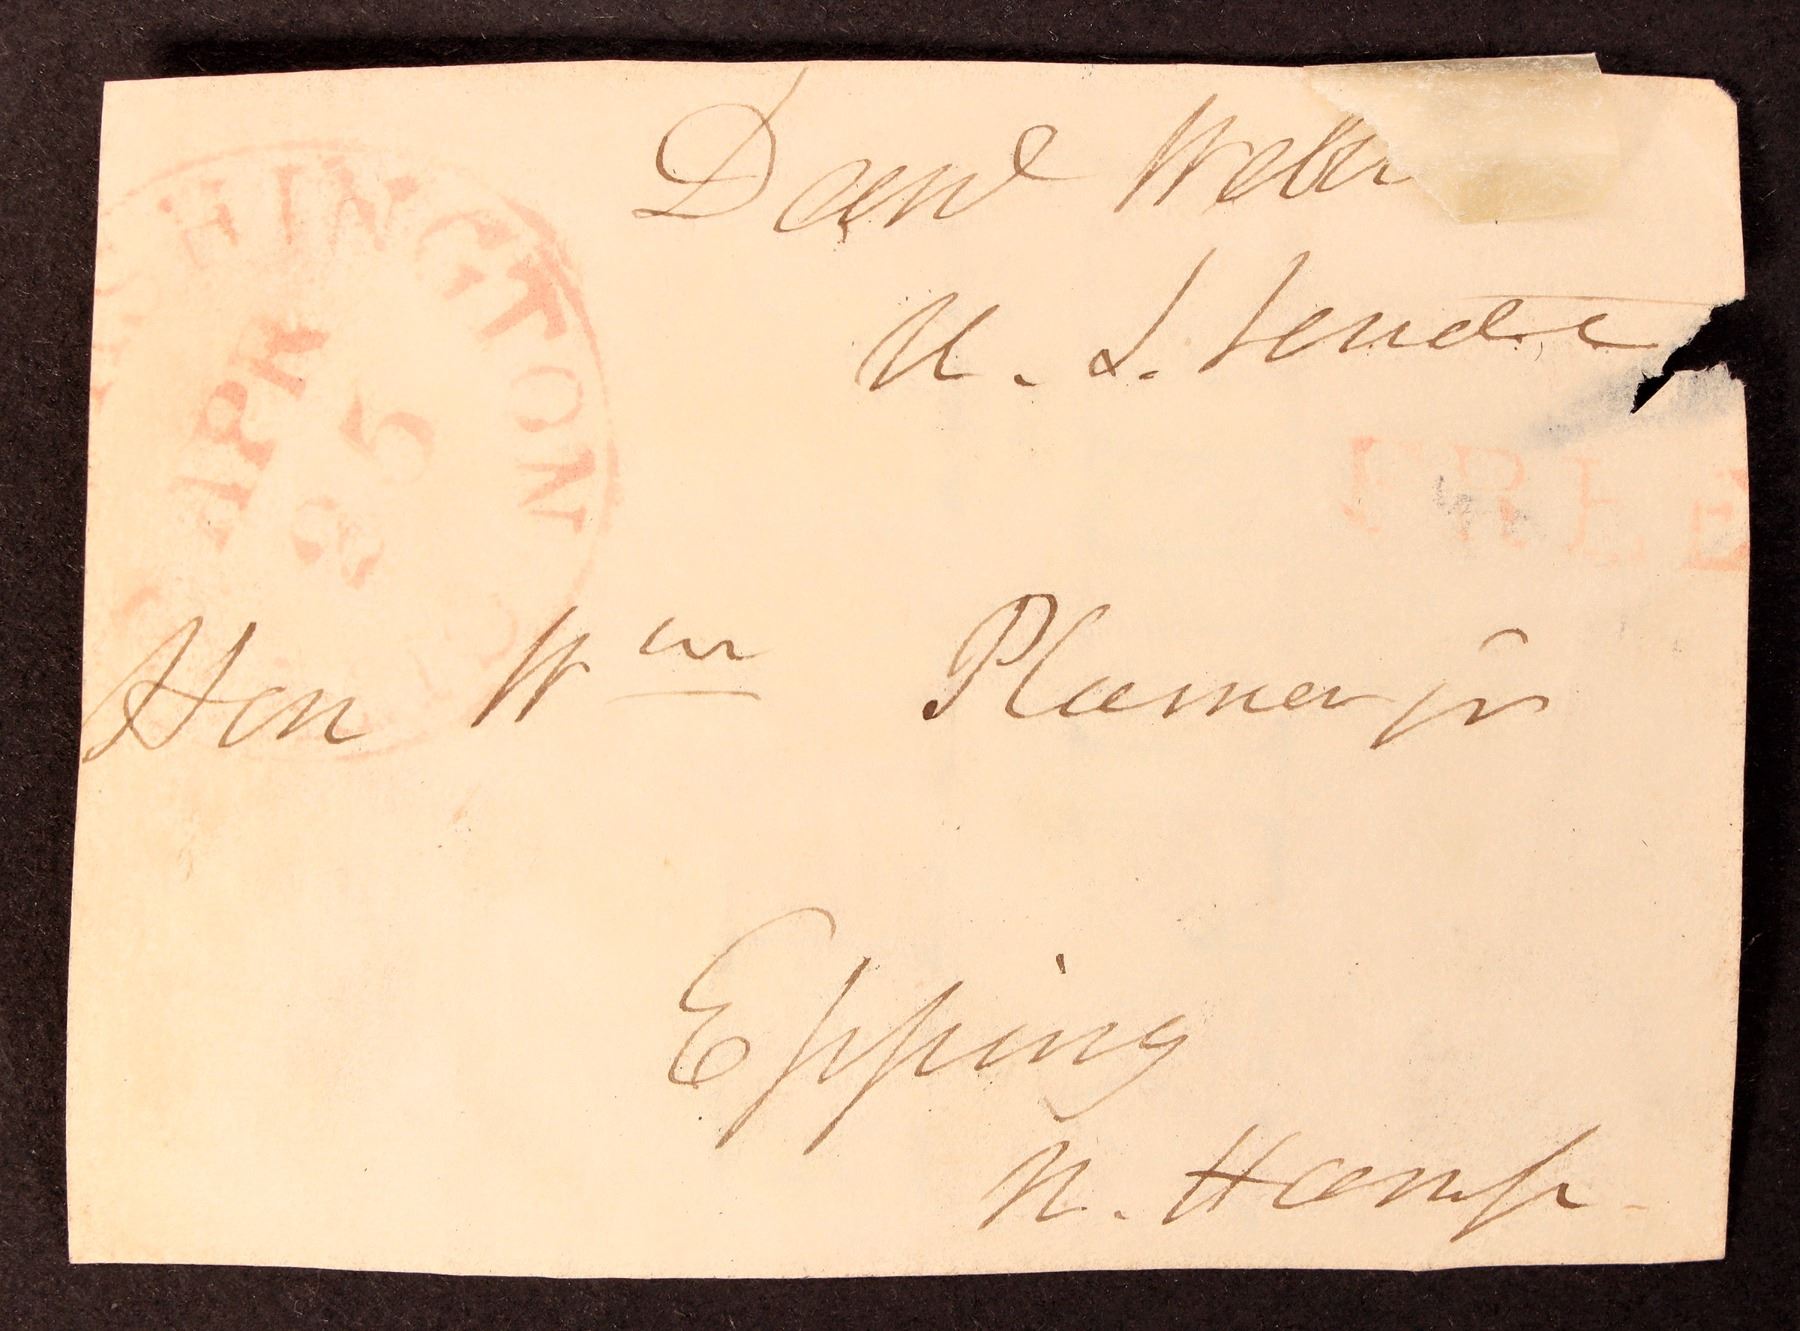 Danl Web
U. S. Senate
WASHINGTON CITY
APR
25
FREE
Hon Wm Plumer jr
Epping
N. Hamp.